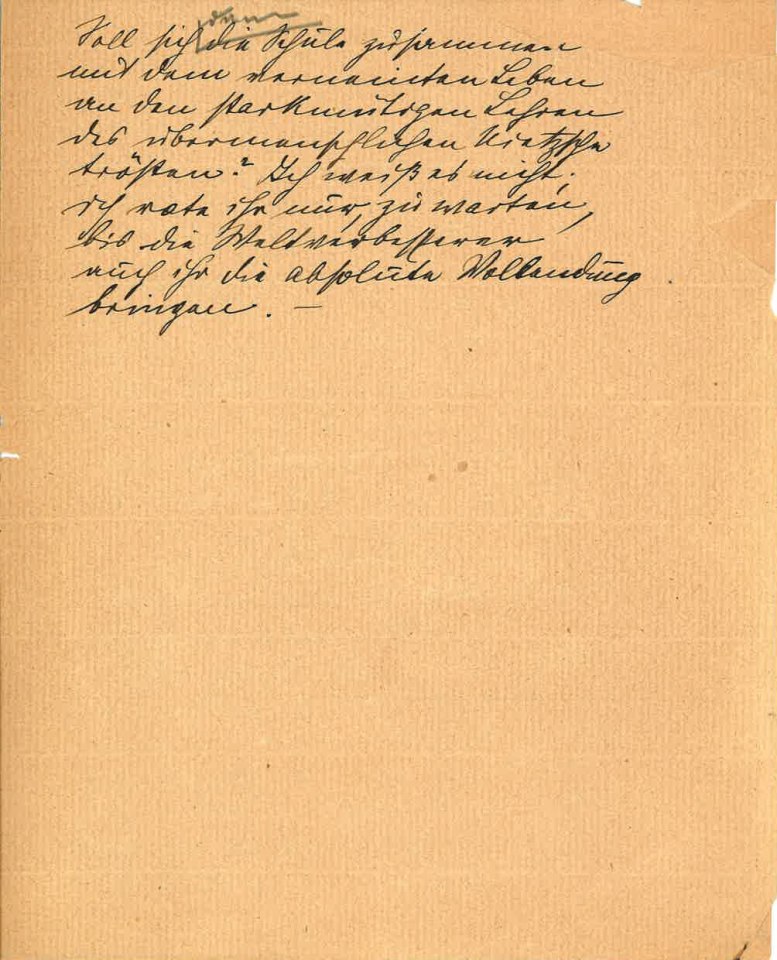 denn
Soll sich die Schule zusammen
mit dem verneinten Leben
an den starkmütigen Lehren
des übermenschlichen Nietzsche
trösten? Ich weiß es nicht;
ich rate ihr nur, zu warten,
bis die Weltverbesserer
auch ihr die absolute Vollendung
bringen. —